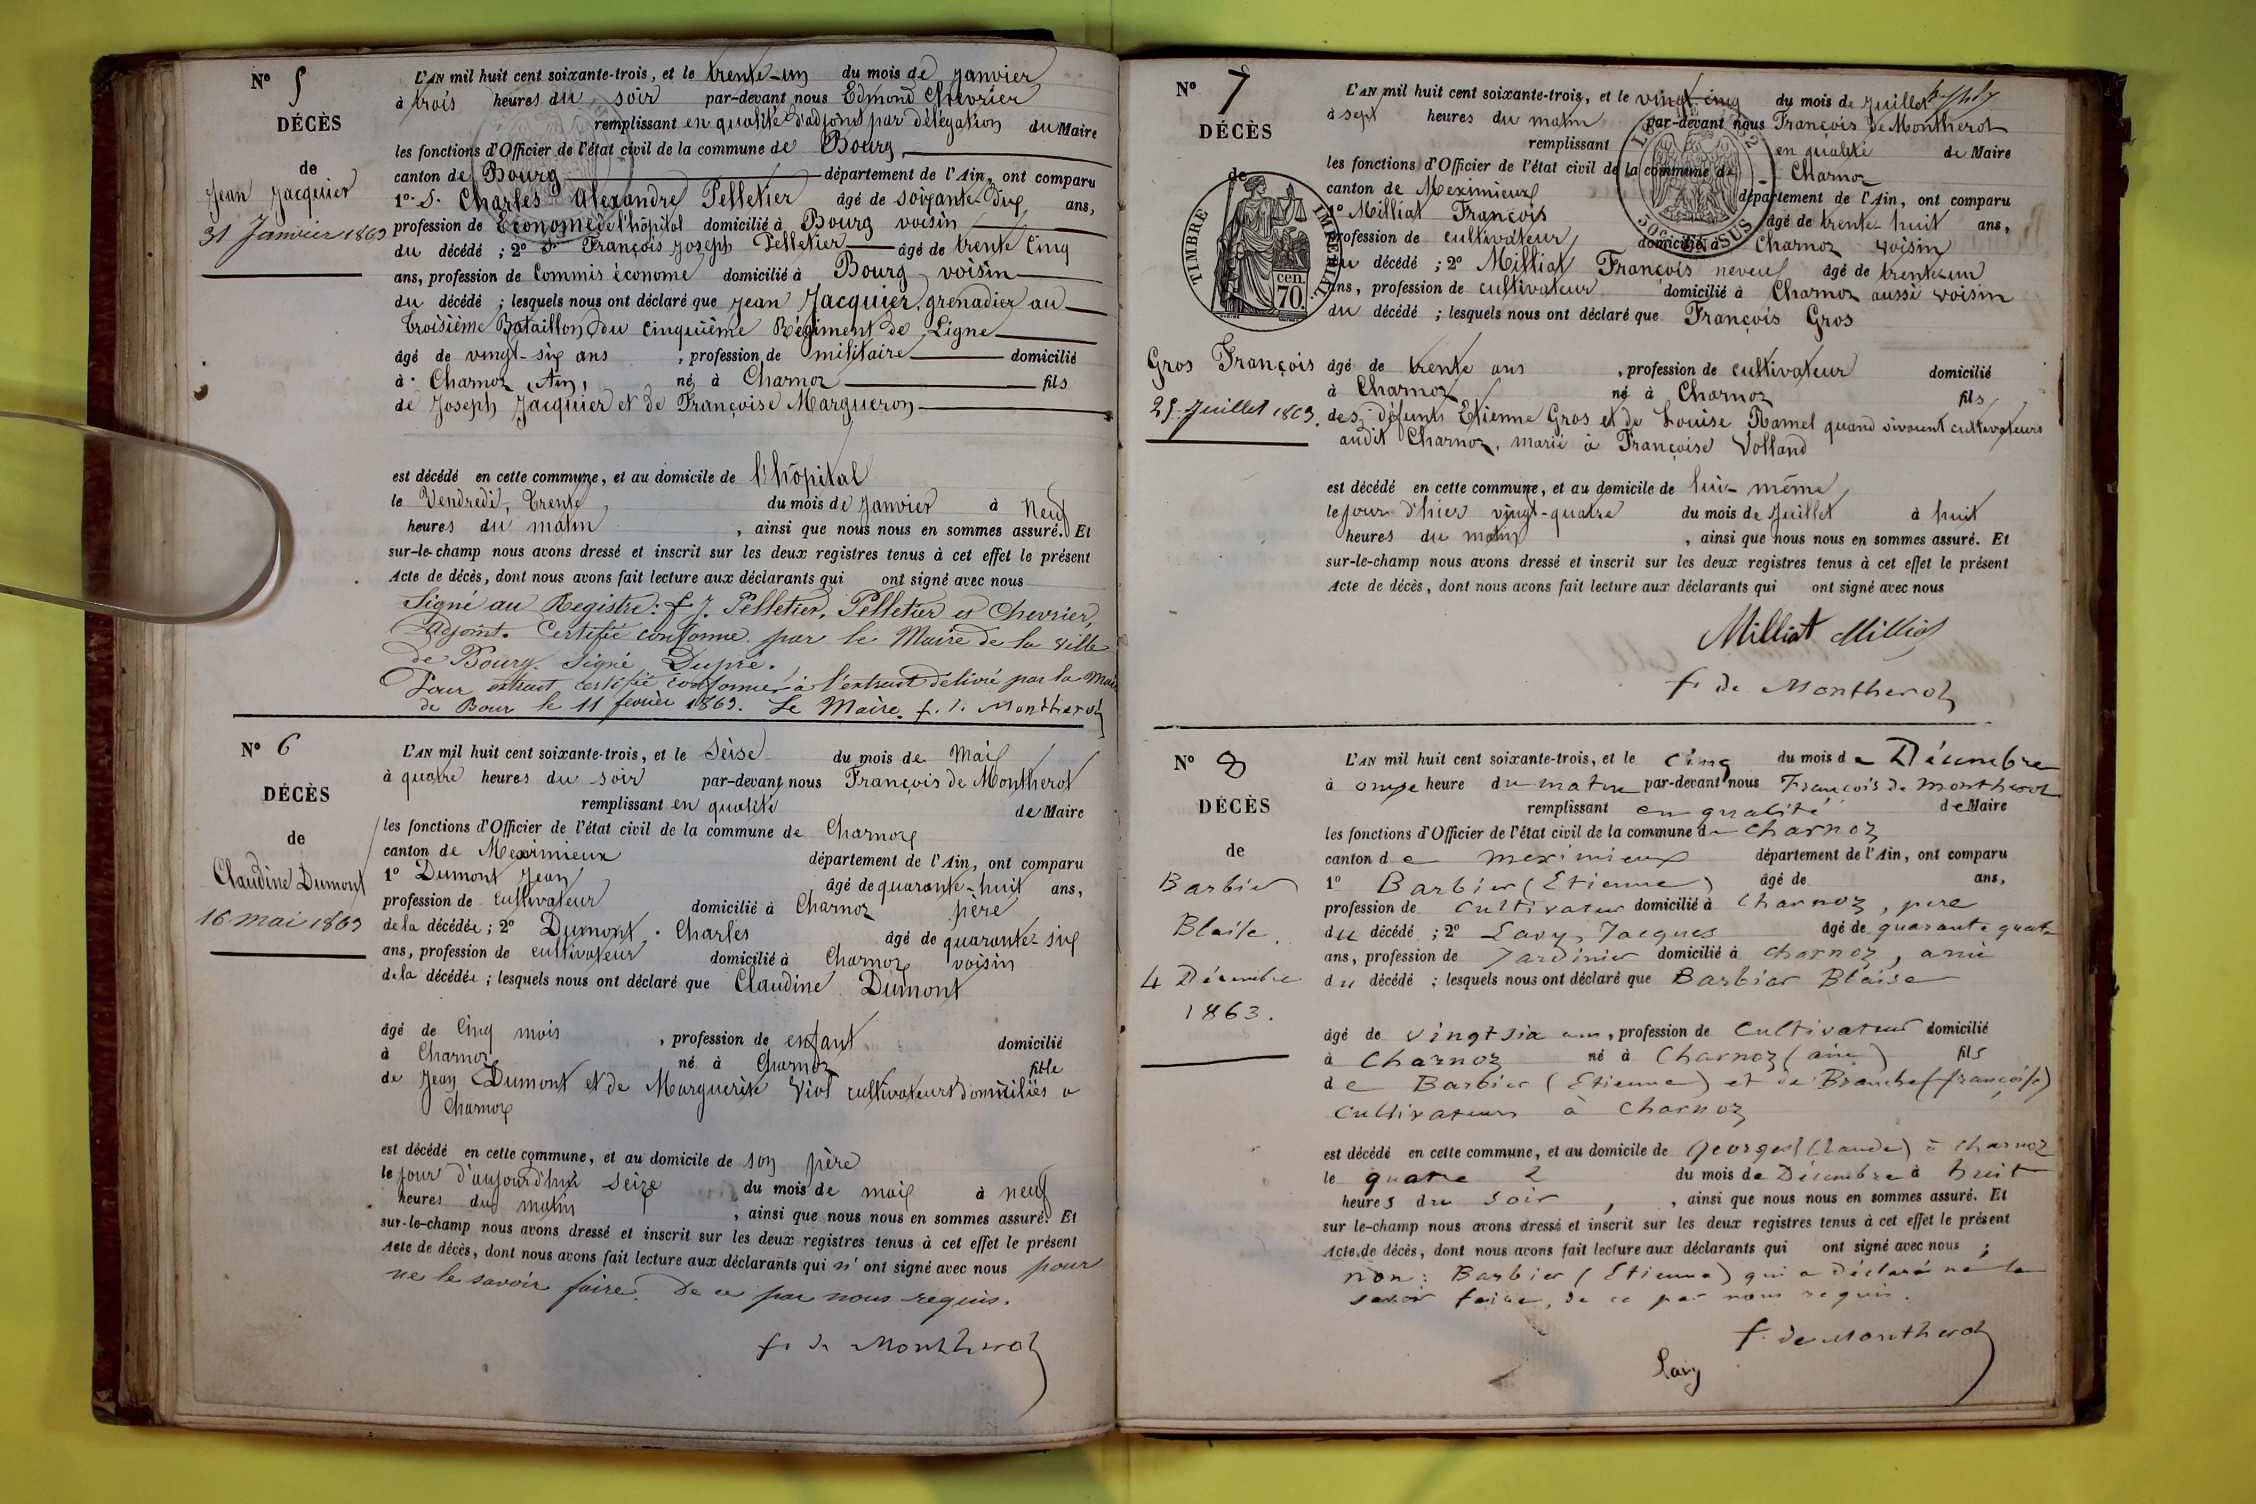 N° 5
DÉCÈS
de
Jean Jacquier
31 Janvier 1863
L'AN mil huit cent soixante-trois, et le trente-un du mois de Janvier
à trois heures du soir par-devant nous Edmond Chevrier
remplissant en qualité d'adjoint par délégation du Maire
les fonctions d'Officier de l'état civil de la commune de Bourg
canton de Bourg département de l'Ain, ont comparu
1° S. Charles Alexandre Pelletier âgé de soixante-dix ans,
profession de Econome de l'hôpital domicilié à Bourg voisin
du décédé ; 2° S. François Joseph Pelletier âgé de trente cinq
ans, profession de Commis économe domicilié à Bourg voisin
du décédé ; lesquels nous ont déclaré que Jean Jacquier, grenadier au
troisième Bataillon du cinquième Régiment de Ligne
âgé de vingt-six ans , profession de militaire domicilié
à Charnoz (Ain) né à Charnoz fils
de Joseph Jacquier et de Françoise Margueron
est décédé en cette commune, et au domicile de l'hôpital
le Vendredi, trente du mois de Janvier à neuf
heures du matin , ainsi que nous nous en sommes assuré. Et
sur-le-champ nous avons dressé et inscrit sur les deux registres tenus à cet effet le présent
Acte de décès, dont nous avons fait lecture aux déclarants qui ont signé avec nous
Signé au Registre : f. J. Pelletier, Pelletier et Chevrier,
Adjoint. Certifié conforme par le Maire de la ville
de Bourg. Signé Dupré.
Pour extrait certifié conforme à l'extrait délivré par la
de Bour le 11 février 1863. Le Maire. f. de Montherot
N° 6
DÉCÈS
de
Claudine Dumont
16 mai 1863
L'AN mil huit cent soixante-trois, et le Seise du mois de Mai
à quatre heures du soir par-devant nous François de Montherot
remplissant en qualité de Maire
les fonctions d'Officier de l'état civil de la commune de Charnoz
canton de Meximieux département de l'Ain, ont comparu
1° Dumont Jean âgé de quarante-huit ans,
profession de cultivateur domicilié à Charnoz père
de la décédée ; 2° Dumont Charles âgé de quarante six
ans, profession de cultivateur domicilié à Charnoz voisin
de la décédée ; lesquels nous ont déclaré que Claudine Dumont
âgé de Cinq mois , profession de enfant domicilié
à Charnoz né à Charnoz fille
de Jean Dumont et de Marguerite Viol cultivateurs domiciliés a
Charnoz
est décédé en cette commune, et au domicile de son père
le jour d'aujourd'hui seize du mois de mai à neuf
heures du matin , ainsi que nous nous en sommes assuré. Et
sur-le-champ nous avons dressé et inscrit sur les deux registres tenus à cet effet le présent
Acte de décès, dont nous avons fait lecture aux déclarants qui n'ont signé avec nous pour
ne le savoir faire. De ce par nous requis.
f. de Montherot
N° 7
DÉCÈS
de
TIMBRE IMPÉRIAL
70 cen.
Gros François
25 Juillet 1863.
L'AN mil huit cent soixante-trois, et le vingt-cinq du mois de Juillet
à sept heures du matin par-devant nous François de Montherot
remplissant en qualité de Maire
les fonctions d'Officier de l'état civil de la commune de Charnoz
canton de Meximieux département de l'Ain, ont comparu
1° Milliat François âgé de trente-huit ans,
profession de cultivateur domicilié à Charnoz voisin
du décédé ; 2° Milliat François neveu âgé de trente-un
ans, profession de cultivateur domicilié à Charnoz aussi voisin
du décédé ; lesquels nous ont déclaré que François Gros
âgé de trente ans , profession de cultivateur domicilié
à Charnoz né à Charnoz fils
des défunts Etienne Gros et de Louise Ramel quand vivaient cultivateurs
audit Charnoz, marié à Françoise Volland
est décédé en cette commune, et au domicile de lui-même
le jour d'hier vingt-quatre du mois de Juillet à huit
heures du matin , ainsi que nous nous en sommes assuré. Et
sur-le-champ nous avons dressé et inscrit sur les deux registres tenus à cet effet le présent
Acte de décès, dont nous avons fait lecture aux déclarants qui ont signé avec nous
Milliat Milliat
f. de Montherot
N° 8
DÉCÈS
de
Barbier
Blaise.
4 Décembre
1863.
L'AN mil huit cent soixante-trois, et le cinq du mois de Décembre
à onze heure du matin par-devant nous François de Montherot
remplissant en qualité de Maire
les fonctions d'Officier de l'état civil de la commune de Charnoz
canton de meximieux département de l'Ain, ont comparu
1° Barbier (Etienne) âgé de ans,
profession de Cultivateur domicilié à Charnoz, père
du décédé ; 2° Lavy, Jacques âgé de quarante quatre
ans, profession de Jardinier domicilié à Charnoz, ami
du décédé ; lesquels nous ont déclaré que Barbier Blaise
âgé de vingt six ans, profession de Cultivateur domicilié
à Charnoz né à Charnoz (ain) fils
de Barbier (Etienne) et de Branche (françoise)
Cultivateurs à Charnoz
est décédé en cette commune, et au domicile de Georges (Claude) à Charnoz
le quatre du mois de Décembre à huit
heures du soir , ainsi que nous nous en sommes assuré. Et
sur le-champ nous avons dressé et inscrit sur les deux registres tenus à cet effet le présent
Acte de décès, dont nous avons fait lecture aux déclarants qui ont signé avec nous ;
non : Barbier (Etienne) qui a déclaré ne le
savoir faire, de ce par nous requis.
f. de Montherot
Lavy